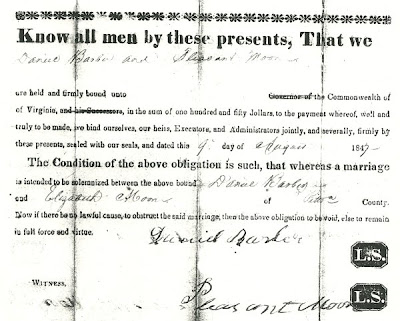 Know all men by these presents, That we
Daniel Barber and Pleasant Moon
are held and firmly bound unto Governor of the Commonwealth of
of Virginia, and his Successors, in the sum of one hundred and fifty Dollars, to the payment whereof, well and
truly to be made, we bind ourselves, our heirs, Executors, and Administrators jointly, and severally, firmly by
these presents, sealed with our seals, and dated this 9 day of August 1847.
The Condition of the above obligation is such, that whereas a marriage
is intended to be solemnized between the above bound Daniel Barber
and Elizabeth Moon of County.
Now if there be no lawful cause, to obstruct the said marriage; then the above obligation to be void, else to remain
in full force and virtue.
Daniel Barber
L.S.
Witness,
Pleasant Moon
L.S.